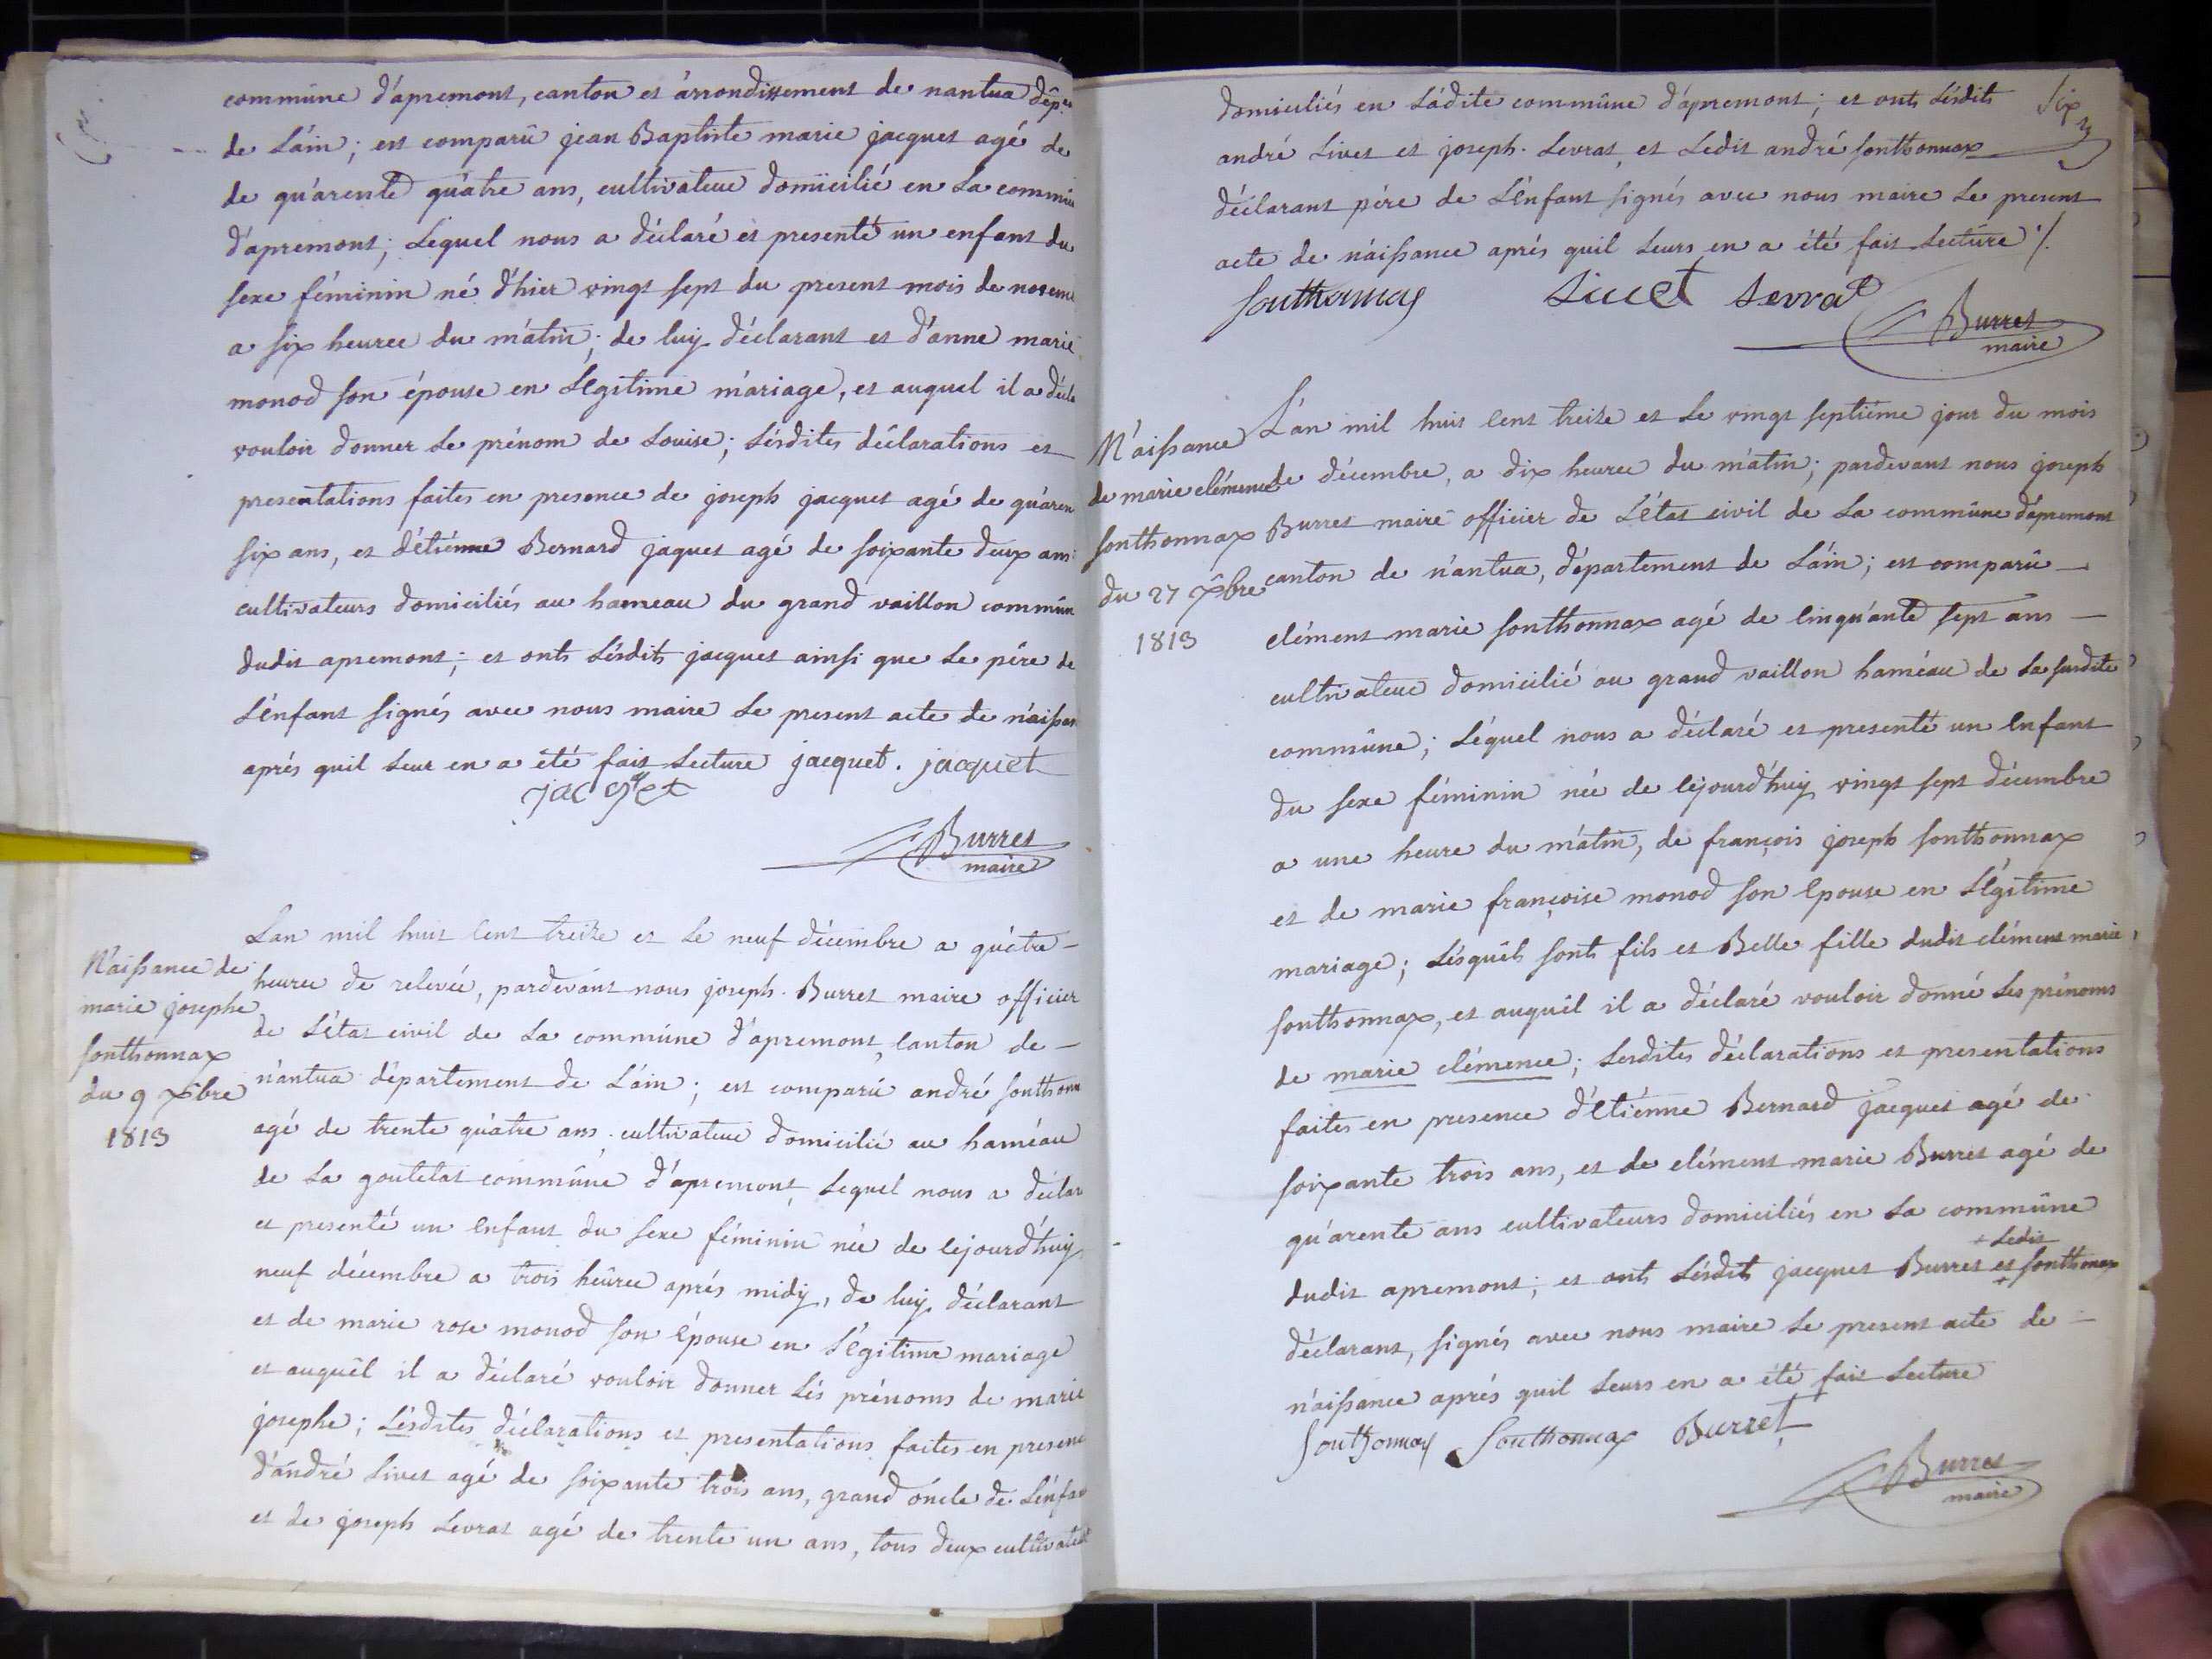 commune d'apremont, canton et arrondissement de nantua dép.
de L'ain; est comparû jean Baptiste marie jacquet agé de
de quarente quatre ans, cultivateur domicilié en La commu
d'apremont; Lequel nous a déclaré et presenté un enfant du
sexe féminin né d'hier vingt sept du present mois de novem
a six heures du matin; de luy déclarant et d'anne marie
monod son épouse en Légitime mariage, et auquel il a décla
vouloir donner Le prénom de Louise; Lésdites déclarations et
presentations faites en presence de joseph jacquet agé de quaren
six ans, et d'étiénne Bernard jaquet agé de soixante deux ans
cultivateurs domiciliés au hameau du grand vaillon commun
dudit apremont; et onts Lésdits jacquet ainsi que Le pére de
L'énfant signés avec nous maire Le present acte de naissan
aprés quil Leur en a été fait Lecture jacquet. jacquet
jacquet
Burret
maire
Naissance de
marie josephe
sonthonnax
du 9 xbre
1813
Lan mil huit Cent treize et Le neuf décembre a quatre
heures de relevée, pardevant nous joseph Burret maire officier
de L'état civil de La commune d'apremont, Canton de
nantua département de L'ain; est comparû andré sonthonn
agé de trente quatre ans, cultivateur domicilié au haméau
de La goutetat commûne d'apremont, Lequel nous a déclar
et presenté un Enfant du sexe féminin née de Cejourd'huy
neuf décembre a trois heûres aprés midy, de luy déclarant
et de marie rose monod son Epouse en Légitime mariage
et auquél il a déclaré vouloir donner Lés prénoms de marie
josephe; Lésdites déclarations et presentations faites en presenc
d'andré Livet agé de soixante trois ans, grand óncle de L'énfan
et de joseph Levrat agé de trente un ans, tous deux cultivateu
domiciliés en Ladite commûne d'apremont; et onts Lésdits
Six
andré Livet et joseph Levrat, et Ledit andré sonthonnax
déclarant pére de L'énfant signés avec nous maire Le present
acte de naissance aprés quil Leurs en a été fait Lecture ./.
sonthonnax Livet Levrat
Burret
maire
Naissance
de marie clémence
sonthonnax
du 27 xbre
1813
L'an mil huit Cent treize et Le vingt septiéme jour du mois
de décembre, a dix heures du matin; pardevant nous joseph
Burret maire officier de L'état civil de La commûne d'apremont
canton de nantua, département de L'ain; est comparû
clément marie sonthonnax agé de Cinquante sept ans
cultivateur domicilié au grand vaillon haméau de La susdite
commûne; Léquel nous a déclaré et presenté un Enfant
du sexe féminin née de Cejourd'huy vingt sept décembre
a une heure du matin, de françois joseph sonthonnax
et de marie françoise monod son Epouse en Légitime
mariage; Lésquéls sonts fils et Belle fille dudit clément marie
sonthonnax, et auquél il a déclaré vouloir donné Les prénoms
de marie clémence; Lesdites déclarations et presentations
faites en presence d'Etiénne Bernard jacquet agé de
soixante trois ans, et de clément marie Burret agé de
quarente ans cultivateurs domiciliés en La commûne
dudit apremont; et onts Lésdits jacquet Burret et + Ledit sonthonnax
déclarant, signés avec nous maire Le present acte de
naissance aprés quil Leurs en a été fait Lecture
Sonthonnax Sonthonnax Burret
Burret
maire